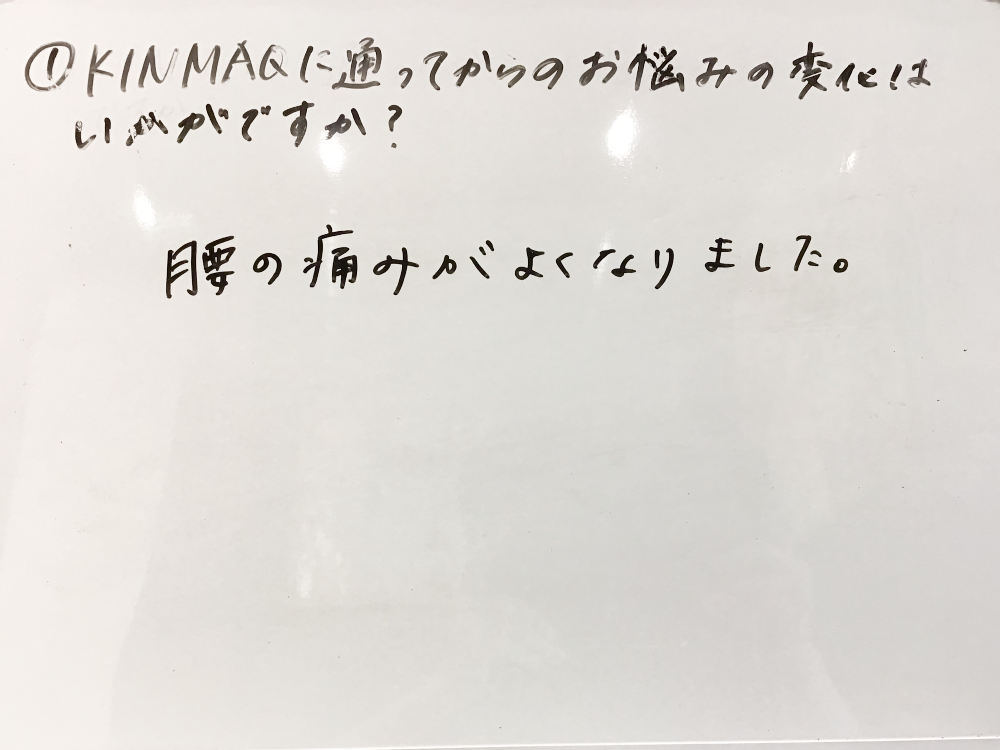 ①KINMAQに通ってからのお悩みの変化は
いかがですか？
腰の痛みがよくなりました。